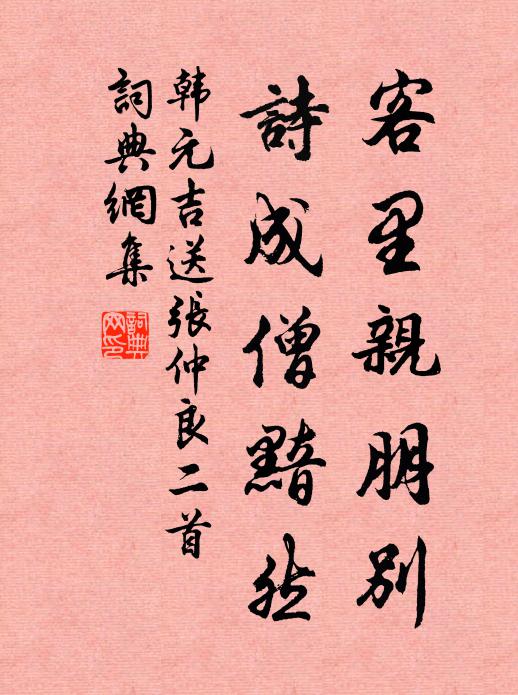 客里親朋別
詩成僧黯然
韩元吉送張仲良二首
詞典網集
詞典網印